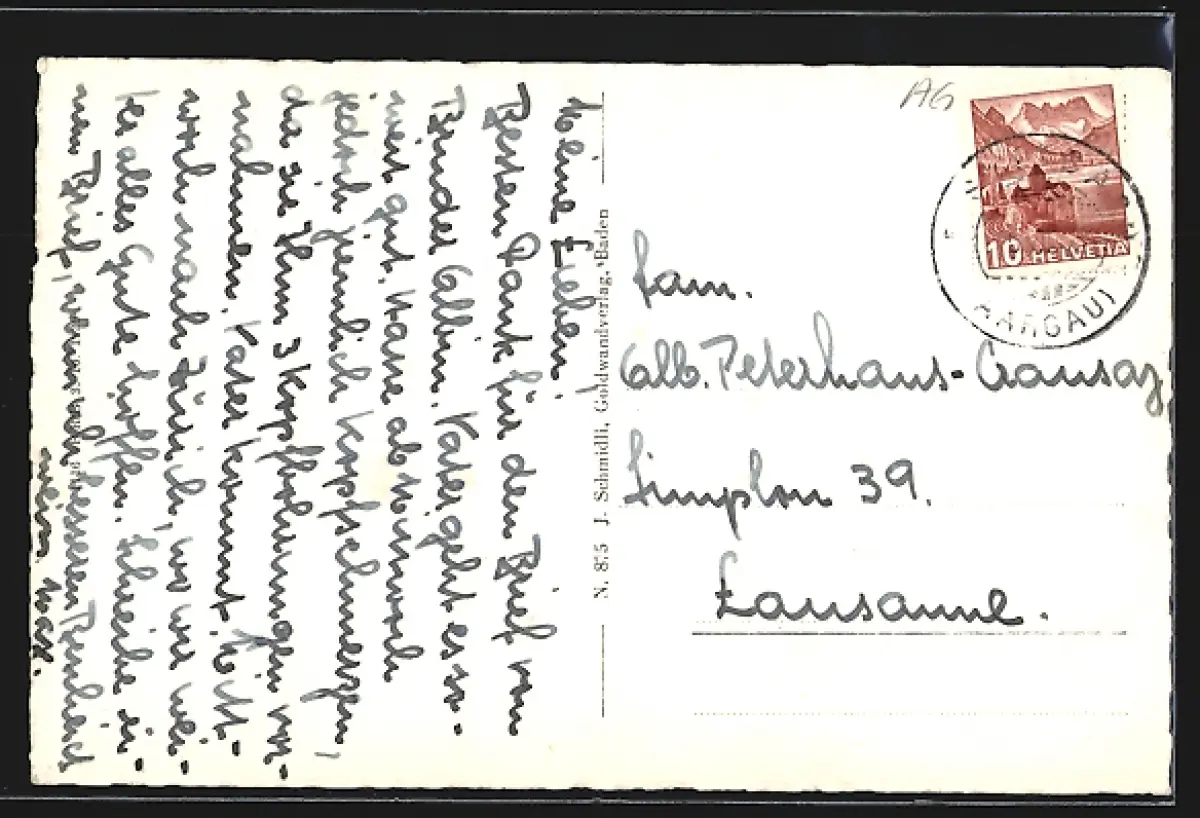 Meine Lieben!
Besten Dank für den Brief von
Bruder Albin. Vater geht es so-
weit gut. Habe ab &
jedoch ziemlich Kopfschmerzen,
da sie Ihm 3 Kopfbohrungen vor-
nahmen. Vater kommt
noch nach Zürich, wo wir wei-
ter alles Gute hoffen. Schreibe ei-
nen Brief, wenn
mein Max.
N. 875 J. Schmidli, Goldwandverlag, Baden
AG
10 HELVETIA
AARGAU
Fam.
Alb. Peterhans-Crausaz
Simplon 39.
Lausanne.